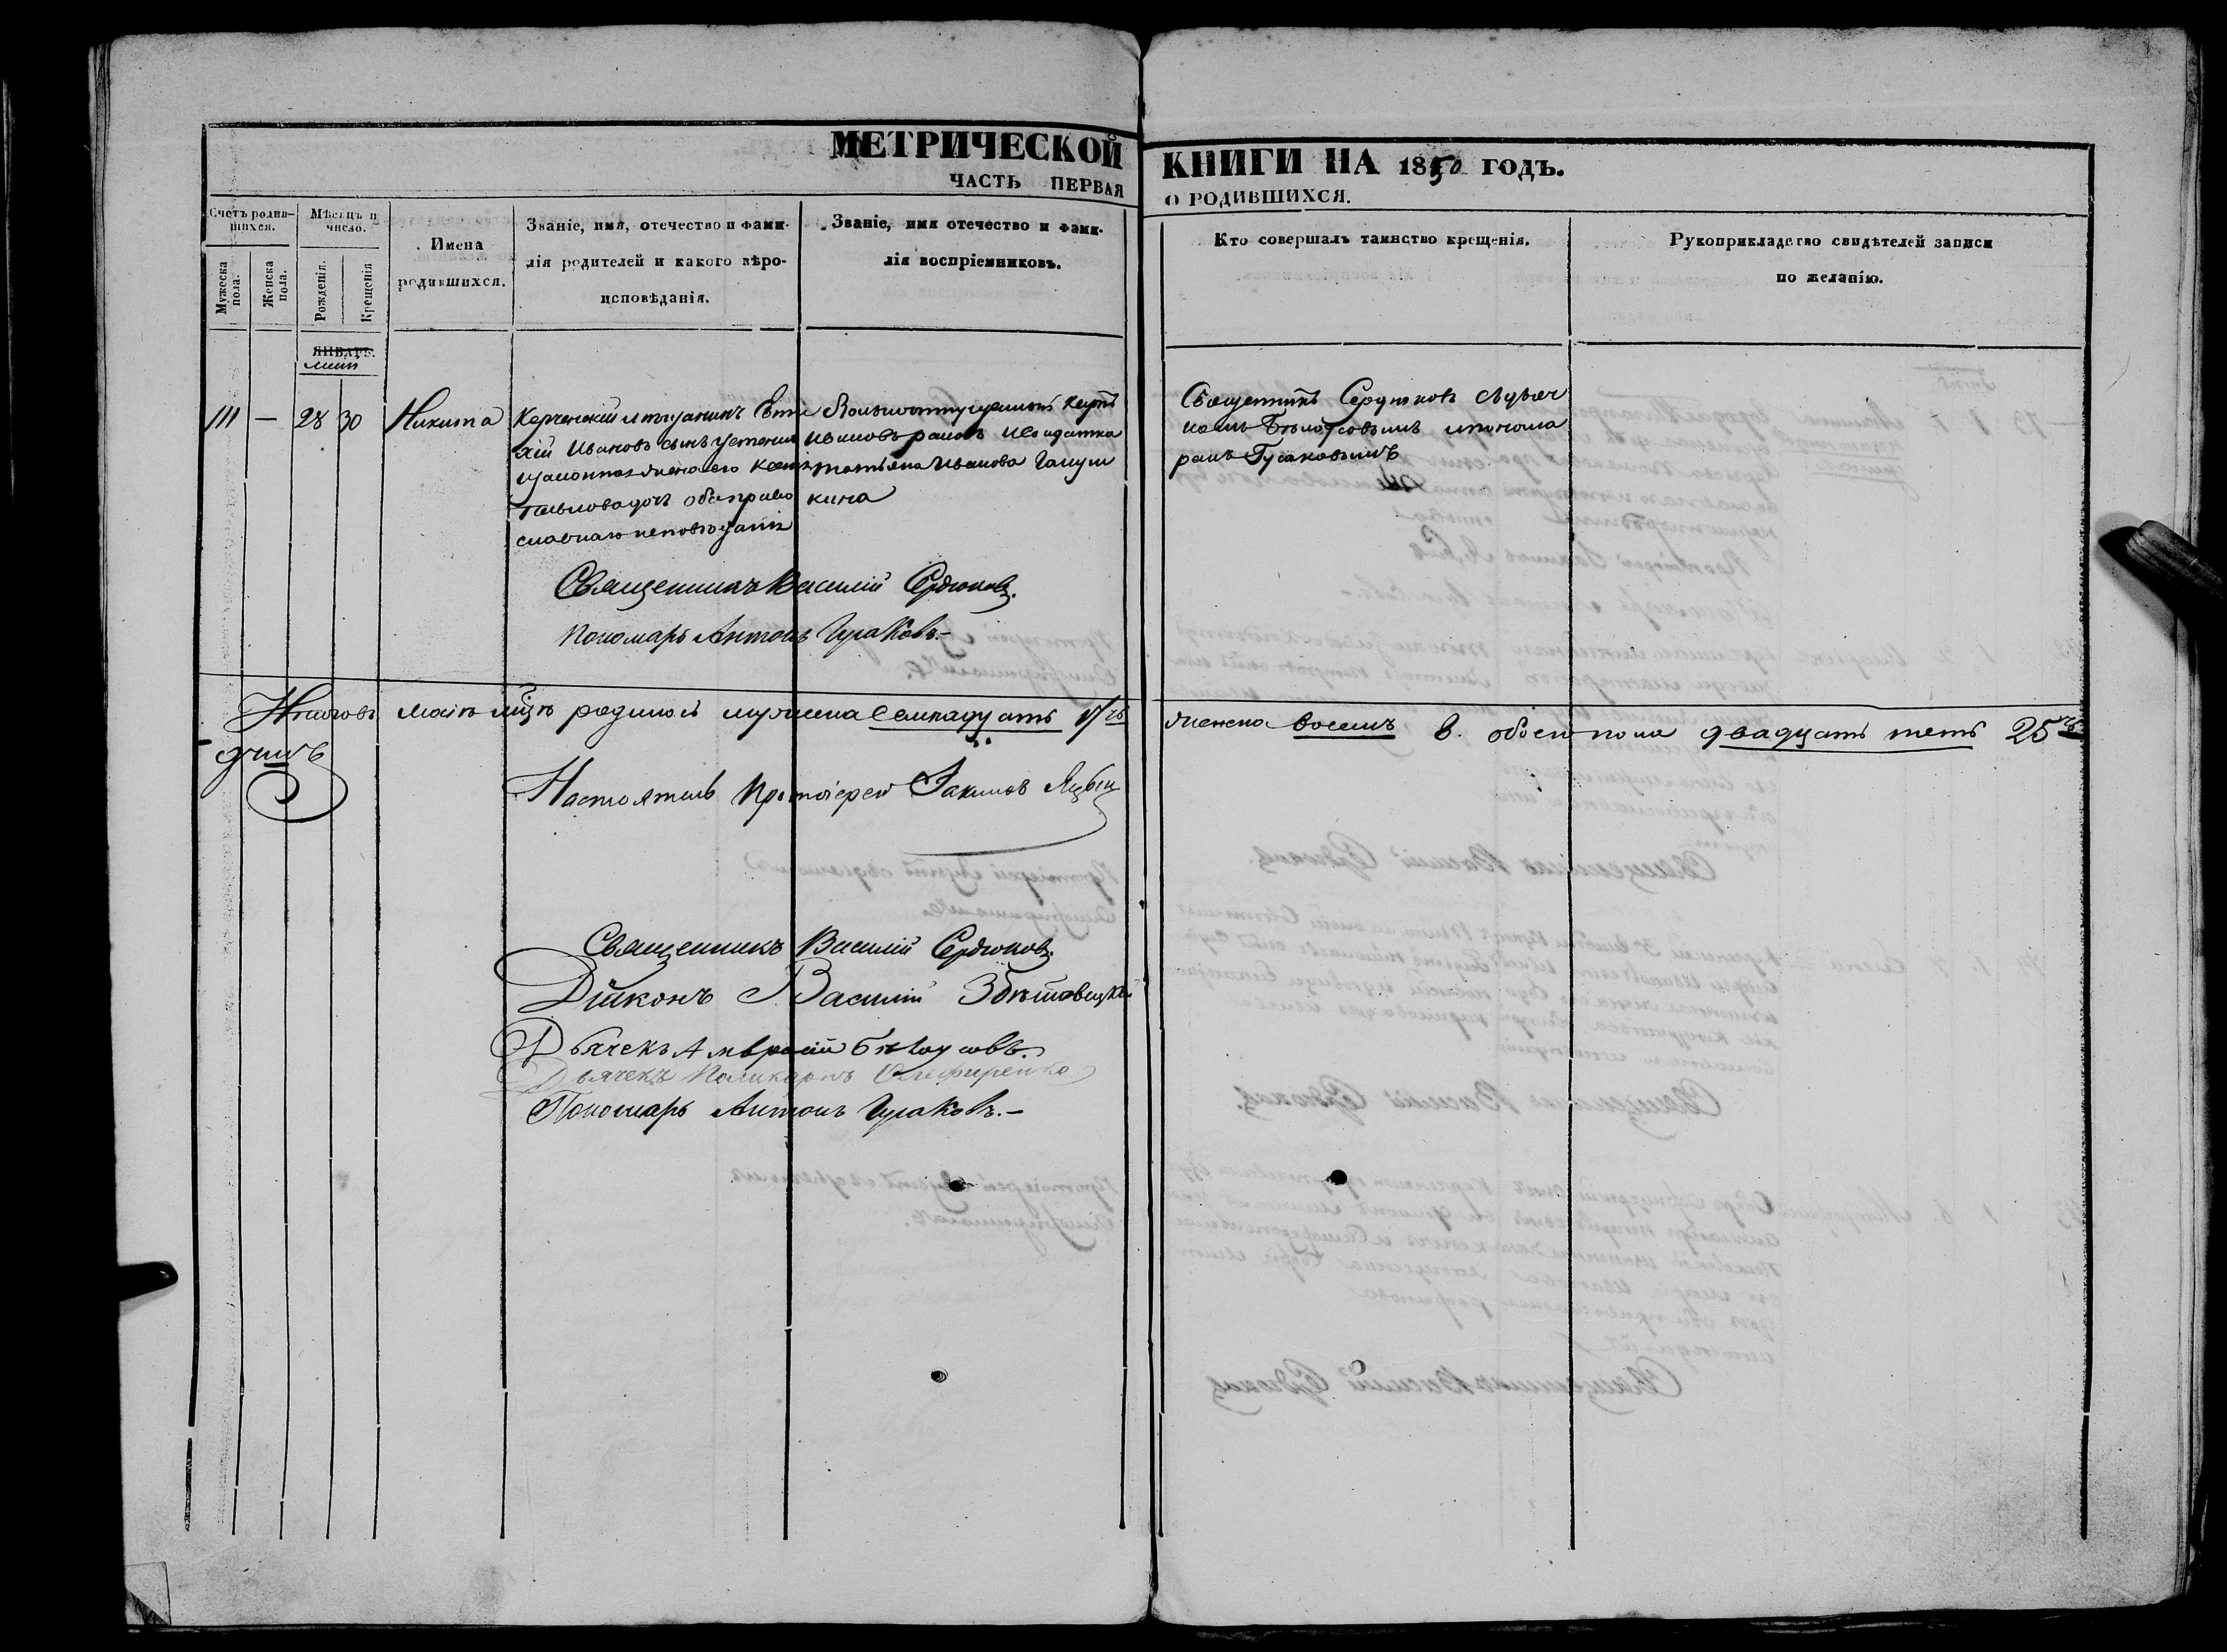 МЕТРИЧЕСКОЙ КНИГИ НА 1850 ГОДЪ.
ЧАСТЬ ПЕРВАЯ О РОДИВШИХСЯ.
Счетъ родив-
шихся.
Мужеска
пола.
Женска
пола.
Мѣсяцъ и
число.
Рожденія.
Крещенія
Имена
родившихся.
Званіе, имя, отечество и фами-
лія родителей и какого вѣро-
исповѣданія.
Званіе, имя отечество и фами-
лія воспріемниковъ.
Кто совершалъ таинство крещенія.
Рукоприкладство свидѣтелей записи
по желанію.
ЯНВАРЬ.
Маій
111 — 28 30 Никита
Керченскій мещанинъ Евти
хій Ивановъ сынъ Устенко
и законная жена его
дочь оба право
славнаго исповѣданія
Ивановъ и солдатка
татьяна Иванова Галуш
кина
Священникъ Сердюковъ съ дьяч
комъ Бѣлоусовымъ и понома
ремъ Гусаковымъ
Священникъ Василій Сердюковъ.
Пономарь Антонъ Гусаковъ.-
Итого въ маіѣ м-цѣ родилось мужеска семнадцать 17ть женска восемь 8. обоего пола двадцать пять 25ть
душъ
Настоятель Протоіерей Іакимовъ
Священникъ Василій Сердюковъ.
Діаконъ Василій
Дьячекъ Амвросій Бѣлоусовъ.
Дьячекъ Поликарпъ Олефиренко
Пономарь Антонъ Гусаковъ.-